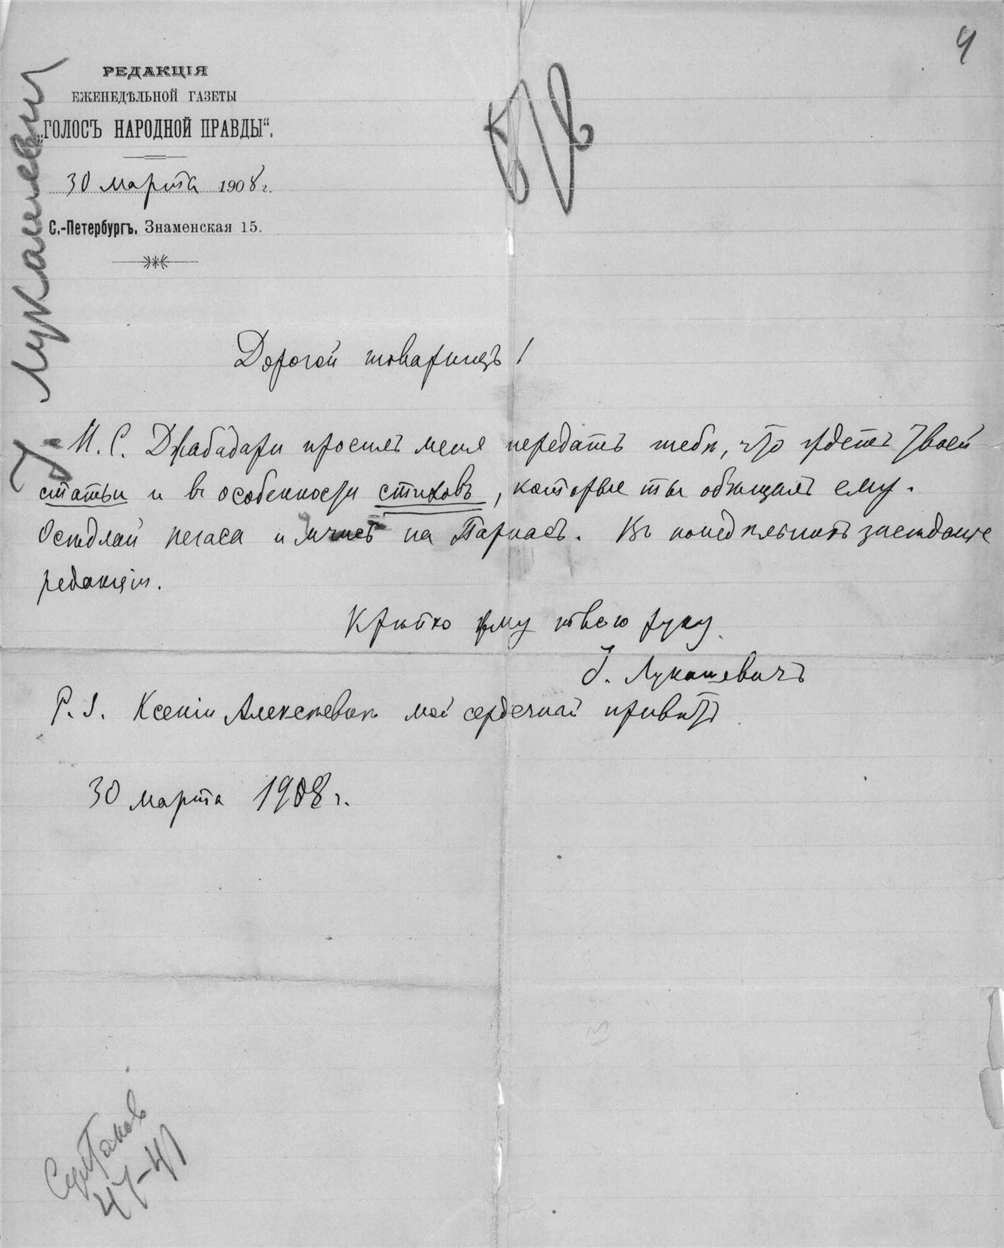 4
РЕДАКЦІЯ
ЕЖЕНЕДѢЛЬНОЙ ГАЗЕТЫ
„ГОЛОСЪ НАРОДНОЙ ПРАВДЫ“.
30 марта 1908 г.
С.-Петербургъ, Знаменская 15.
І. Лукашевич
Дорогой товарищъ!
И. С. Джабадари просилъ меня передать тебѣ, что ждетъ твоей
статьи и въ особенности стиховъ, которые ты обѣщалъ ему.
Осѣдлай пегаса и мчись на Парнасъ. Въ понедѣльникъ засѣданіе
редакціи.
Крѣпко жму твою руку.
І. Лукашевичъ
P.S. Ксеніи Алексѣевнѣ мой сердечный привѣтъ
30 марта 1908 г.
47-41